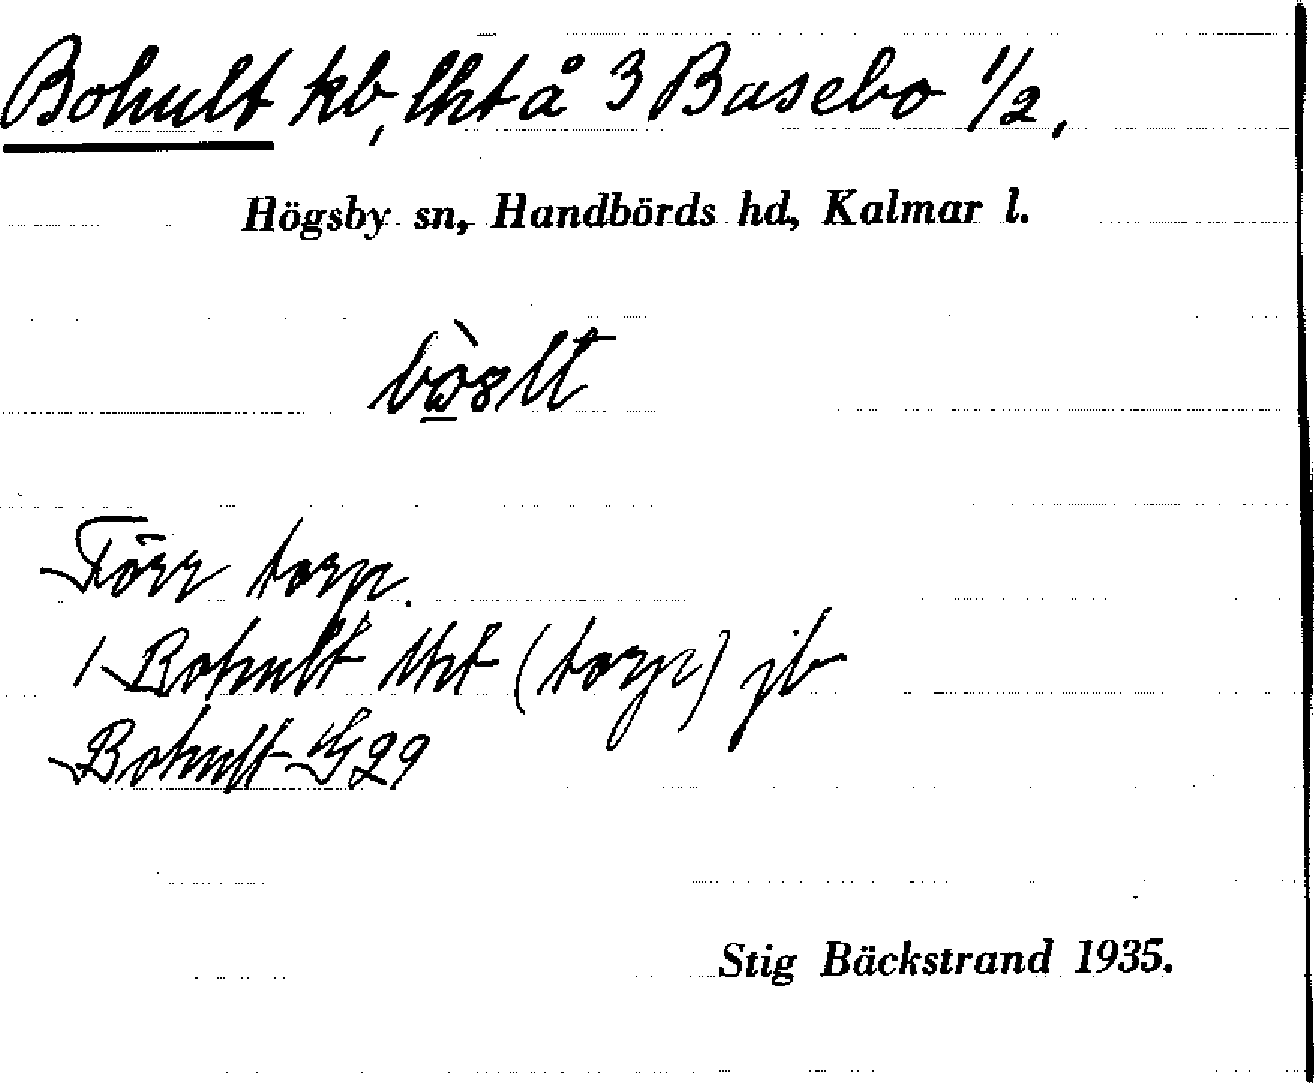 Bohult kb, lht å 3 Basebo 1/2,
Högsby sn, Handbörds hd, Kalmar l.
Förr torp.
1 Bohult lht (torp) jb
Bohult G29
Stig Bäckstrand 1935.